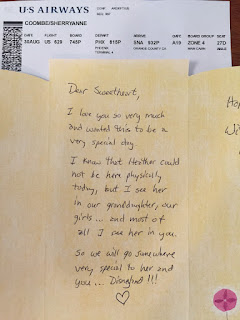 US AIRWAYS
COOMBE/SHERRYANNE
DATE FLIGHT BOARD DEPART ARRIVE GATE BOARD GROUP SEAT
30AUG US 629 745P PHX 815P SNA 932P A19 ZONE 4 27D
PHOENIX ORANGE COUNTY CA
TERMINAL 4
Dear Sweetheart,
I love you so very much
and wanted this to be a
very special day.
I know that Heather could
not be here physically
today, but I see her
in our granddaughter, our
girls ... and most of
all I see her in you.
So we will go somewhere
very special to her and
you ... Disneyland!!!